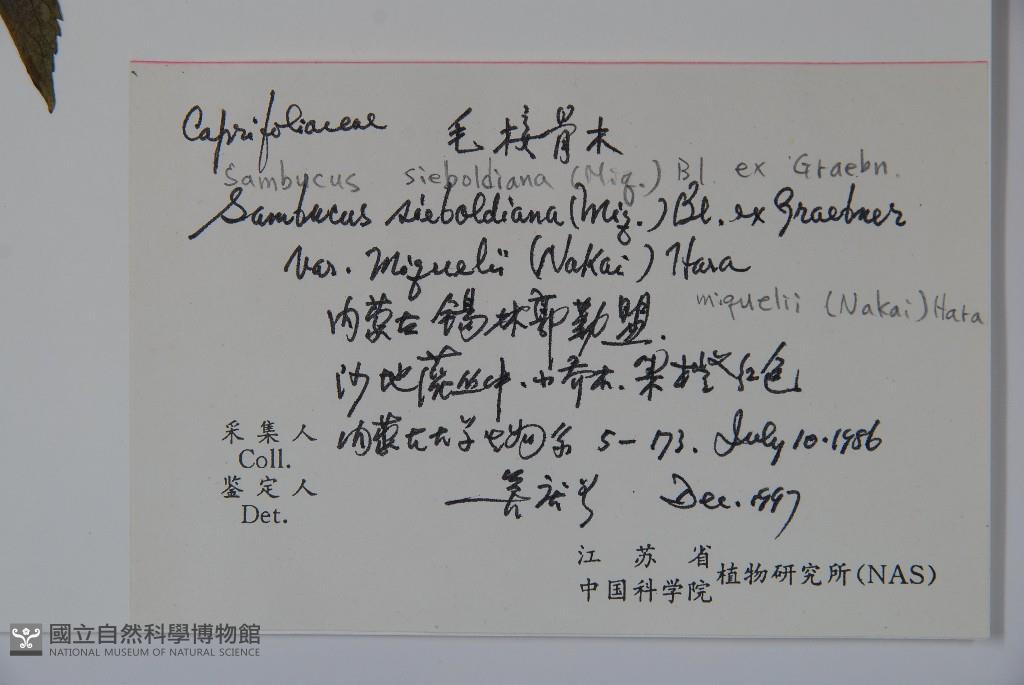 Caprifoliaceae 毛接骨木
Sambucus sieboldiana (Miq.) Bl. ex Graebn.
Sambucus sieboldiana (Miq.) Bl. ex Graebner
var. Miquelii (Nakai) Hara
miquelii (Nakai) Hara
内蒙古 锡林郭勒盟.
沙地灌丛中.小乔木.果橙红色
采集人 内蒙古大学生物系 5-173. July 10. 1986
Coll.
鉴定人 Dec. 1997
Det.
江苏省
中国科学院 植物研究所(NAS)
國立自然科學博物館
NATIONAL MUSEUM OF NATURAL SCIENCE